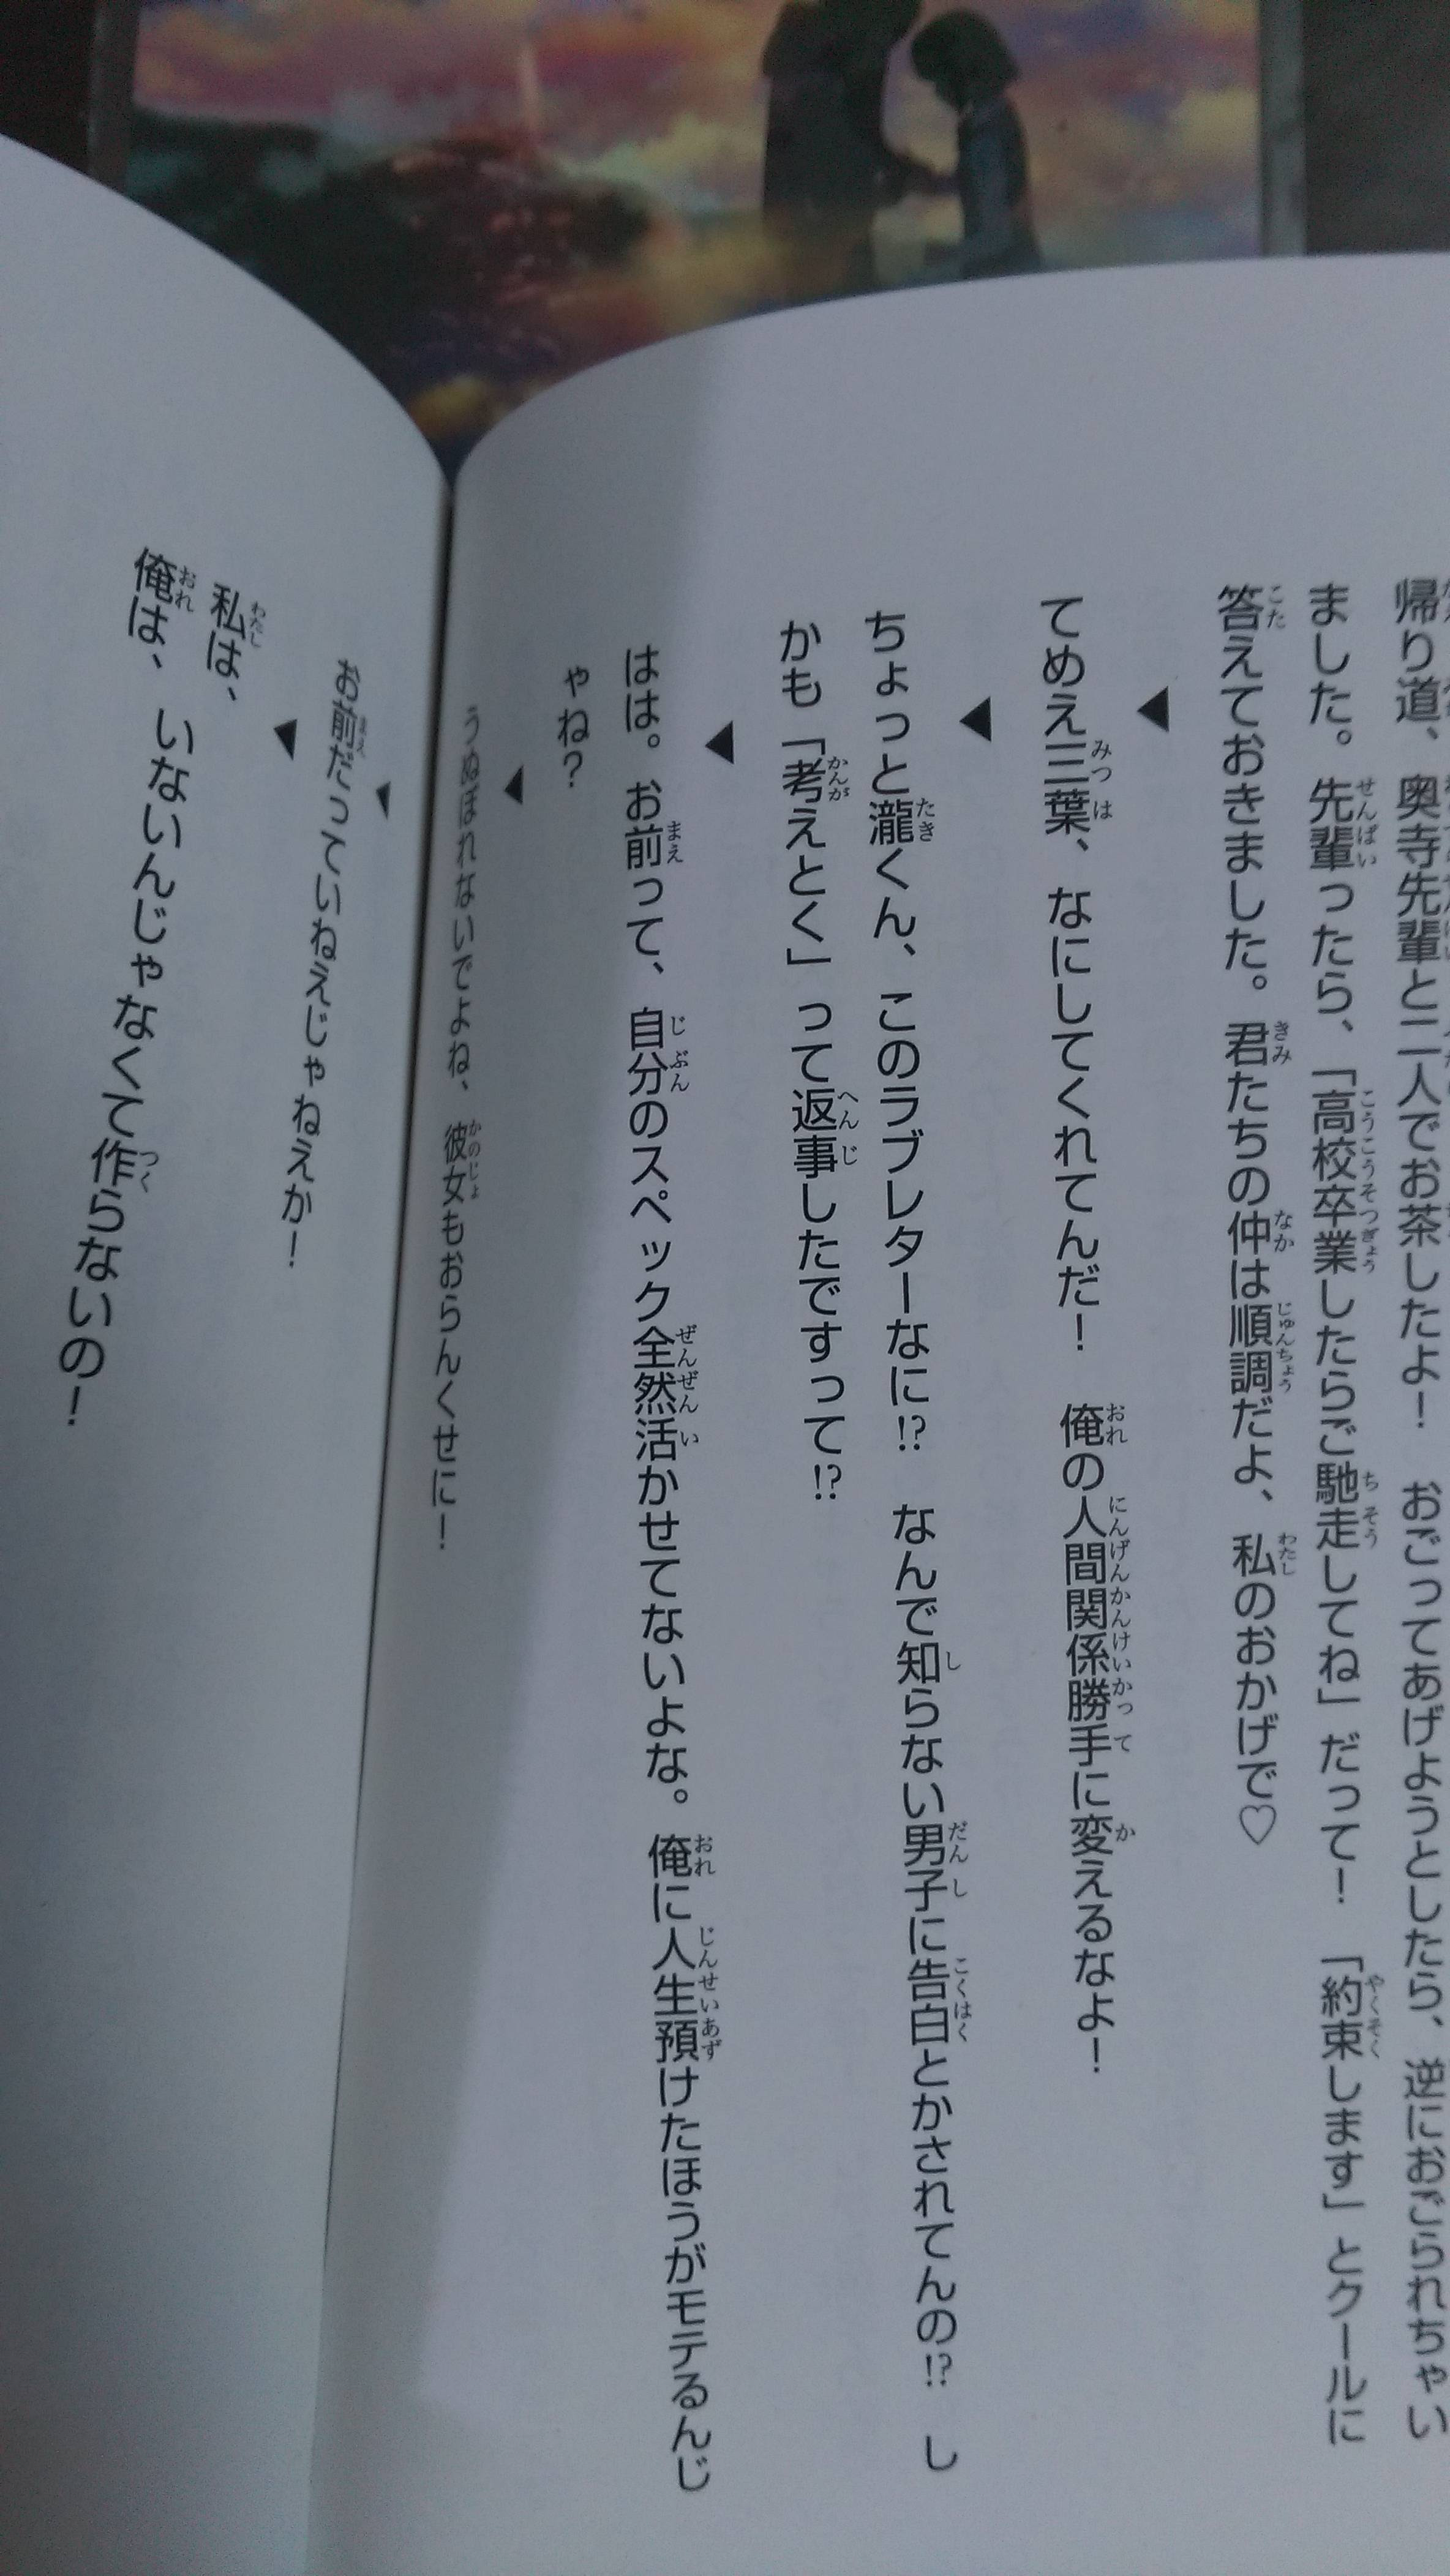 帰り道、奥寺先輩と二人でお茶したよ！　おごってあげようとしたら、逆におごられちゃい
ました。先輩ったら、「高校卒業したらご馳走してね」だって！　「約束します」とクールに
答えておきました。君たちの仲は順調だよ、私のおかげで♡
▼
てめえ三葉、なにしてくれてんだ！　俺の人間関係勝手に変えるなよ！
▼
ちょっと瀧くん、このラブレターなに⁉　なんで知らない男子に告白とかされてんの⁉　し
かも「考えとく」って返事したですって⁉
▼
はは。お前って、自分のスペック全然活かせてないよな。俺に人生預けたほうがモテるんじ
ゃね？
▼
うぬぼれないでよね、彼女もおらんくせに！
▼
お前だっていねえじゃねえか！
▼
私は、
俺は、いないんじゃなくて作らないの！